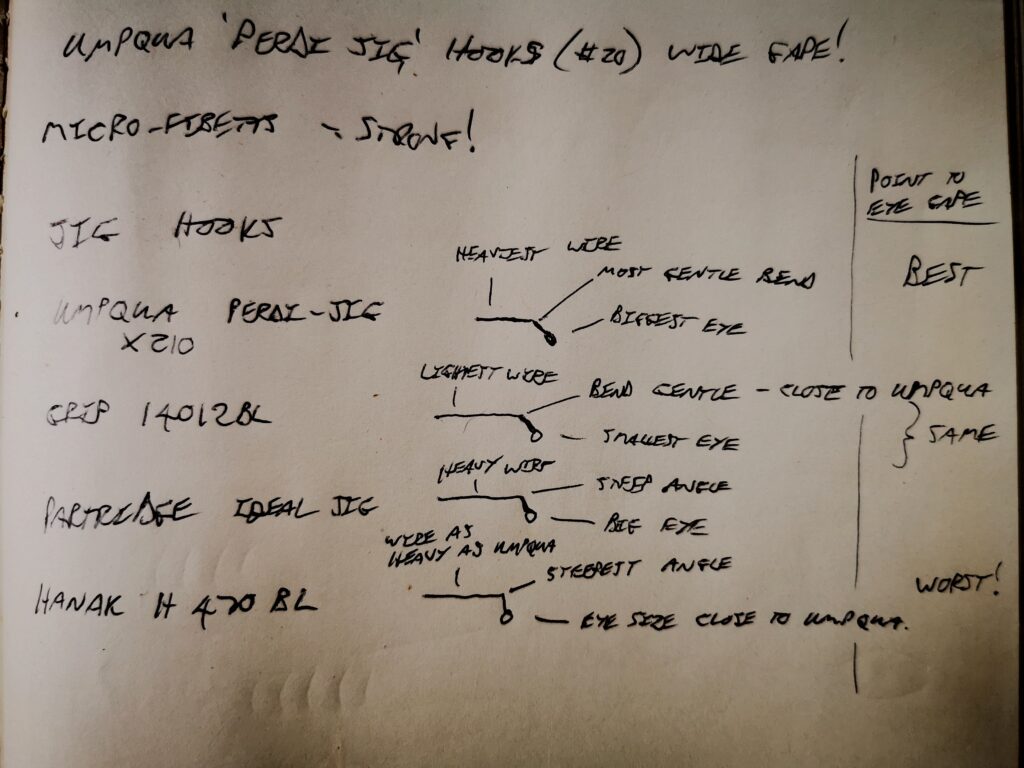 UMPQUA 'PERDI JIG' HOOKS (#20) WIDE GAPE!
MICRO-FIBETTS - STRONG!
POINT TO
EYE GAPE
JIG HOOKS
HEAVIEST WIRE
MOST GENTLE BEND
BEST
UMPQUA PERDI-JIG
X210
BIGGEST EYE
LIGHTEST WIRE
BEND GENTLE - CLOSE TO UMPQUA
GRIP 14012BL
SMALLEST EYE
SAME
HEAVY WIRE
STEEP ANGLE
PARTRIDGE IDEAL JIG
BIG EYE
WIRE AS
HEAVY AS UMPQUA
STEEPEST ANGLE
WORST!
HANAK H 470 BL
EYE SIZE CLOSE TO UMPQUA.